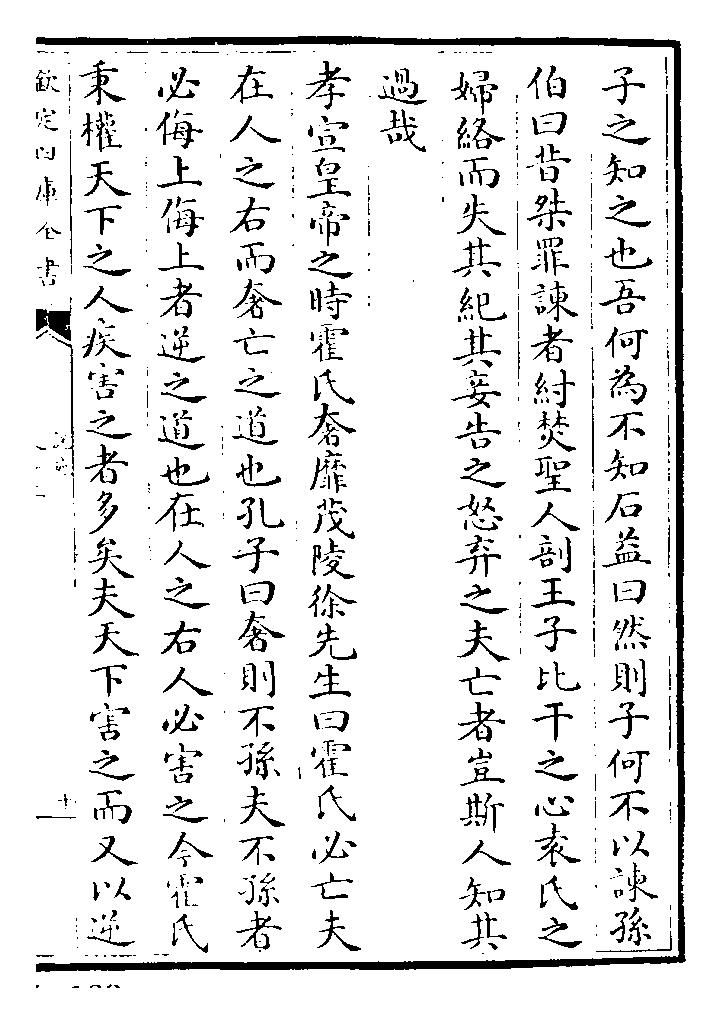 子之知之也吾何為不知石益曰然則子何不以諫孫
伯曰昔桀罪諫者紂焚聖人剖王子比干之心袁氏之
婦絡而失其紀其妾告之怒弃之夫亡者豈斯人知其
過哉
孝宣皇帝之時霍氏奢靡茂陵徐先生曰霍氏必亡夫
在人之右而奢亡之道也孔子曰奢則不孫夫不孫者
必侮上侮上者逆之道也在人之右人必害之今霍氏
秉權天下之人疾害之者多矣夫天下害之而又以逆
欽定四庫全書